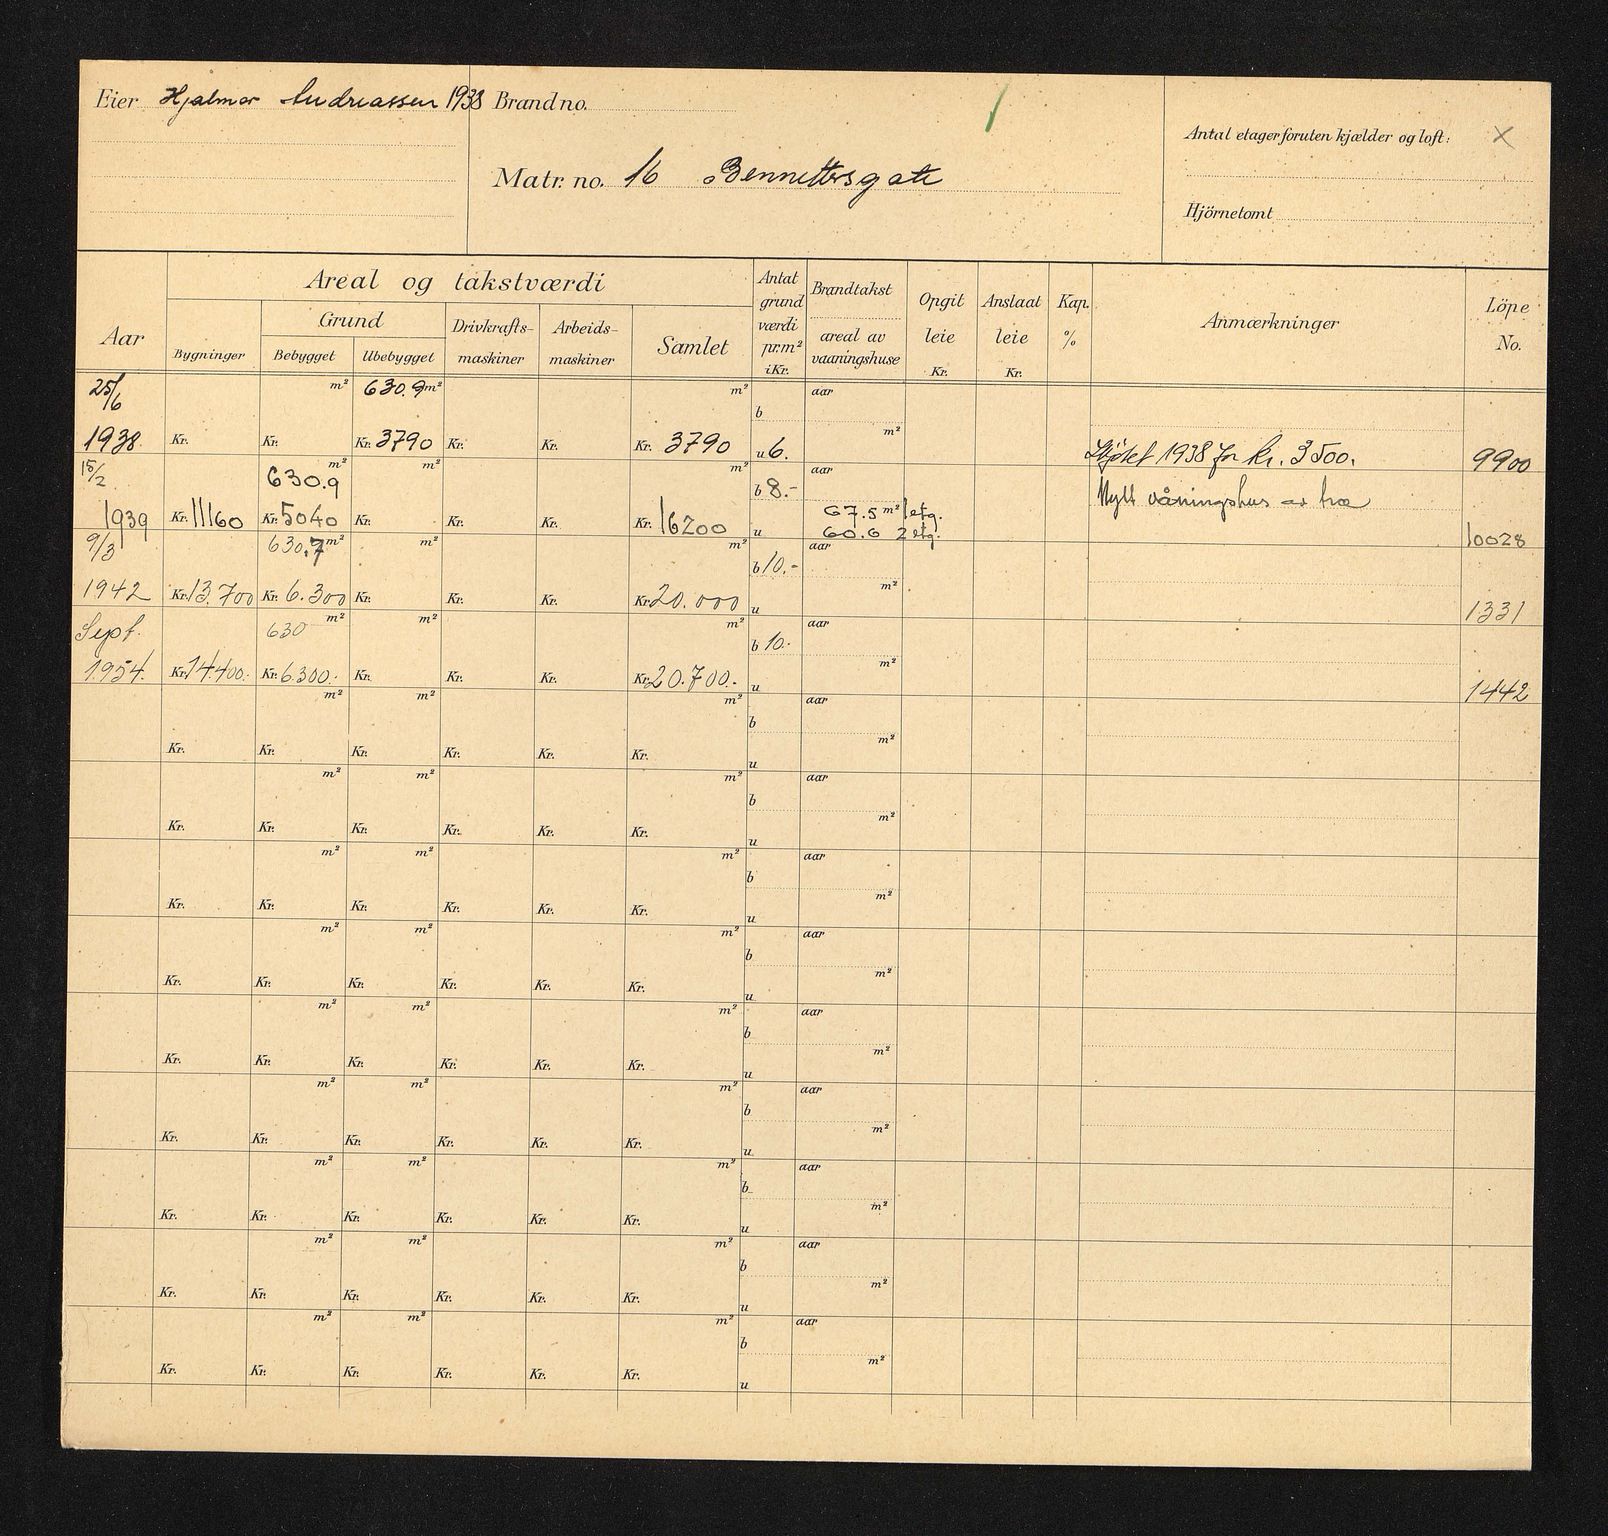 Eier Hjalmar Andreassen 1938
Brand no.
Matr. no. 16 Bennettersgate
Antal etager foruten kjælder og loft: X
Hjörnetomt
Areal og takstværdi
Grund
Aar
Bygninger
Bebygget
Ubebygget
Drivkrafts-
maskiner
Arbeids-
maskiner
Samlet
Antat
grund
værdi
pr.m²
i Kr.
Brandtakst
areal av
vaaningshuse
Opgit
leie
Kr.
Anslaat
leie
Kr.
Kap.
%
Anmærkninger
Löpe
No.
25/6 m² 630.9 m² m² aar
b
m²
1938. Kr. Kr. Kr. 3790 Kr. Kr. Kr. 3790 u 6. Skjötet 1938 for kr. 3500. 9900
15/2 630.9 m² m² m² b 8.- aar Nytt våningshus av træ
67.5 m² 1 etg.
1939 Kr. 11160 Kr. 5040 Kr. Kr. Kr. Kr. 16200 u 60.6 2 etg. 10028
9/3 630.7 m² m² m² b 10.- aar
m²
1942 Kr. 13.700 Kr. 6.300 Kr. Kr. Kr. Kr. 20.000 u 1331
Sept. 630 m² m² m² b 10.- aar
m²
1954. Kr. 14.400.- Kr. 6.300.- Kr. Kr. Kr. Kr. 20.700.- u 1442
m² m² m² aar
b
m²
Kr. Kr. Kr. Kr. Kr. Kr. u
m² m² m² aar
b
m²
Kr. Kr. Kr. Kr. Kr. Kr. u
m² m² m² aar
b
m²
Kr. Kr. Kr. Kr. Kr. Kr. u
m² m² m² aar
b
m²
Kr. Kr. Kr. Kr. Kr. Kr. u
m² m² m² aar
b
m²
Kr. Kr. Kr. Kr. Kr. Kr. u
m² m² m² aar
b
m²
Kr. Kr. Kr. Kr. Kr. Kr. u
m² m² m² aar
b
m²
Kr. Kr. Kr. Kr. Kr. Kr. u
m² m² m² aar
b
m²
Kr. Kr. Kr. Kr. Kr. Kr. u
m² m² m² aar
b
m²
Kr. Kr. Kr. Kr. Kr. Kr. u